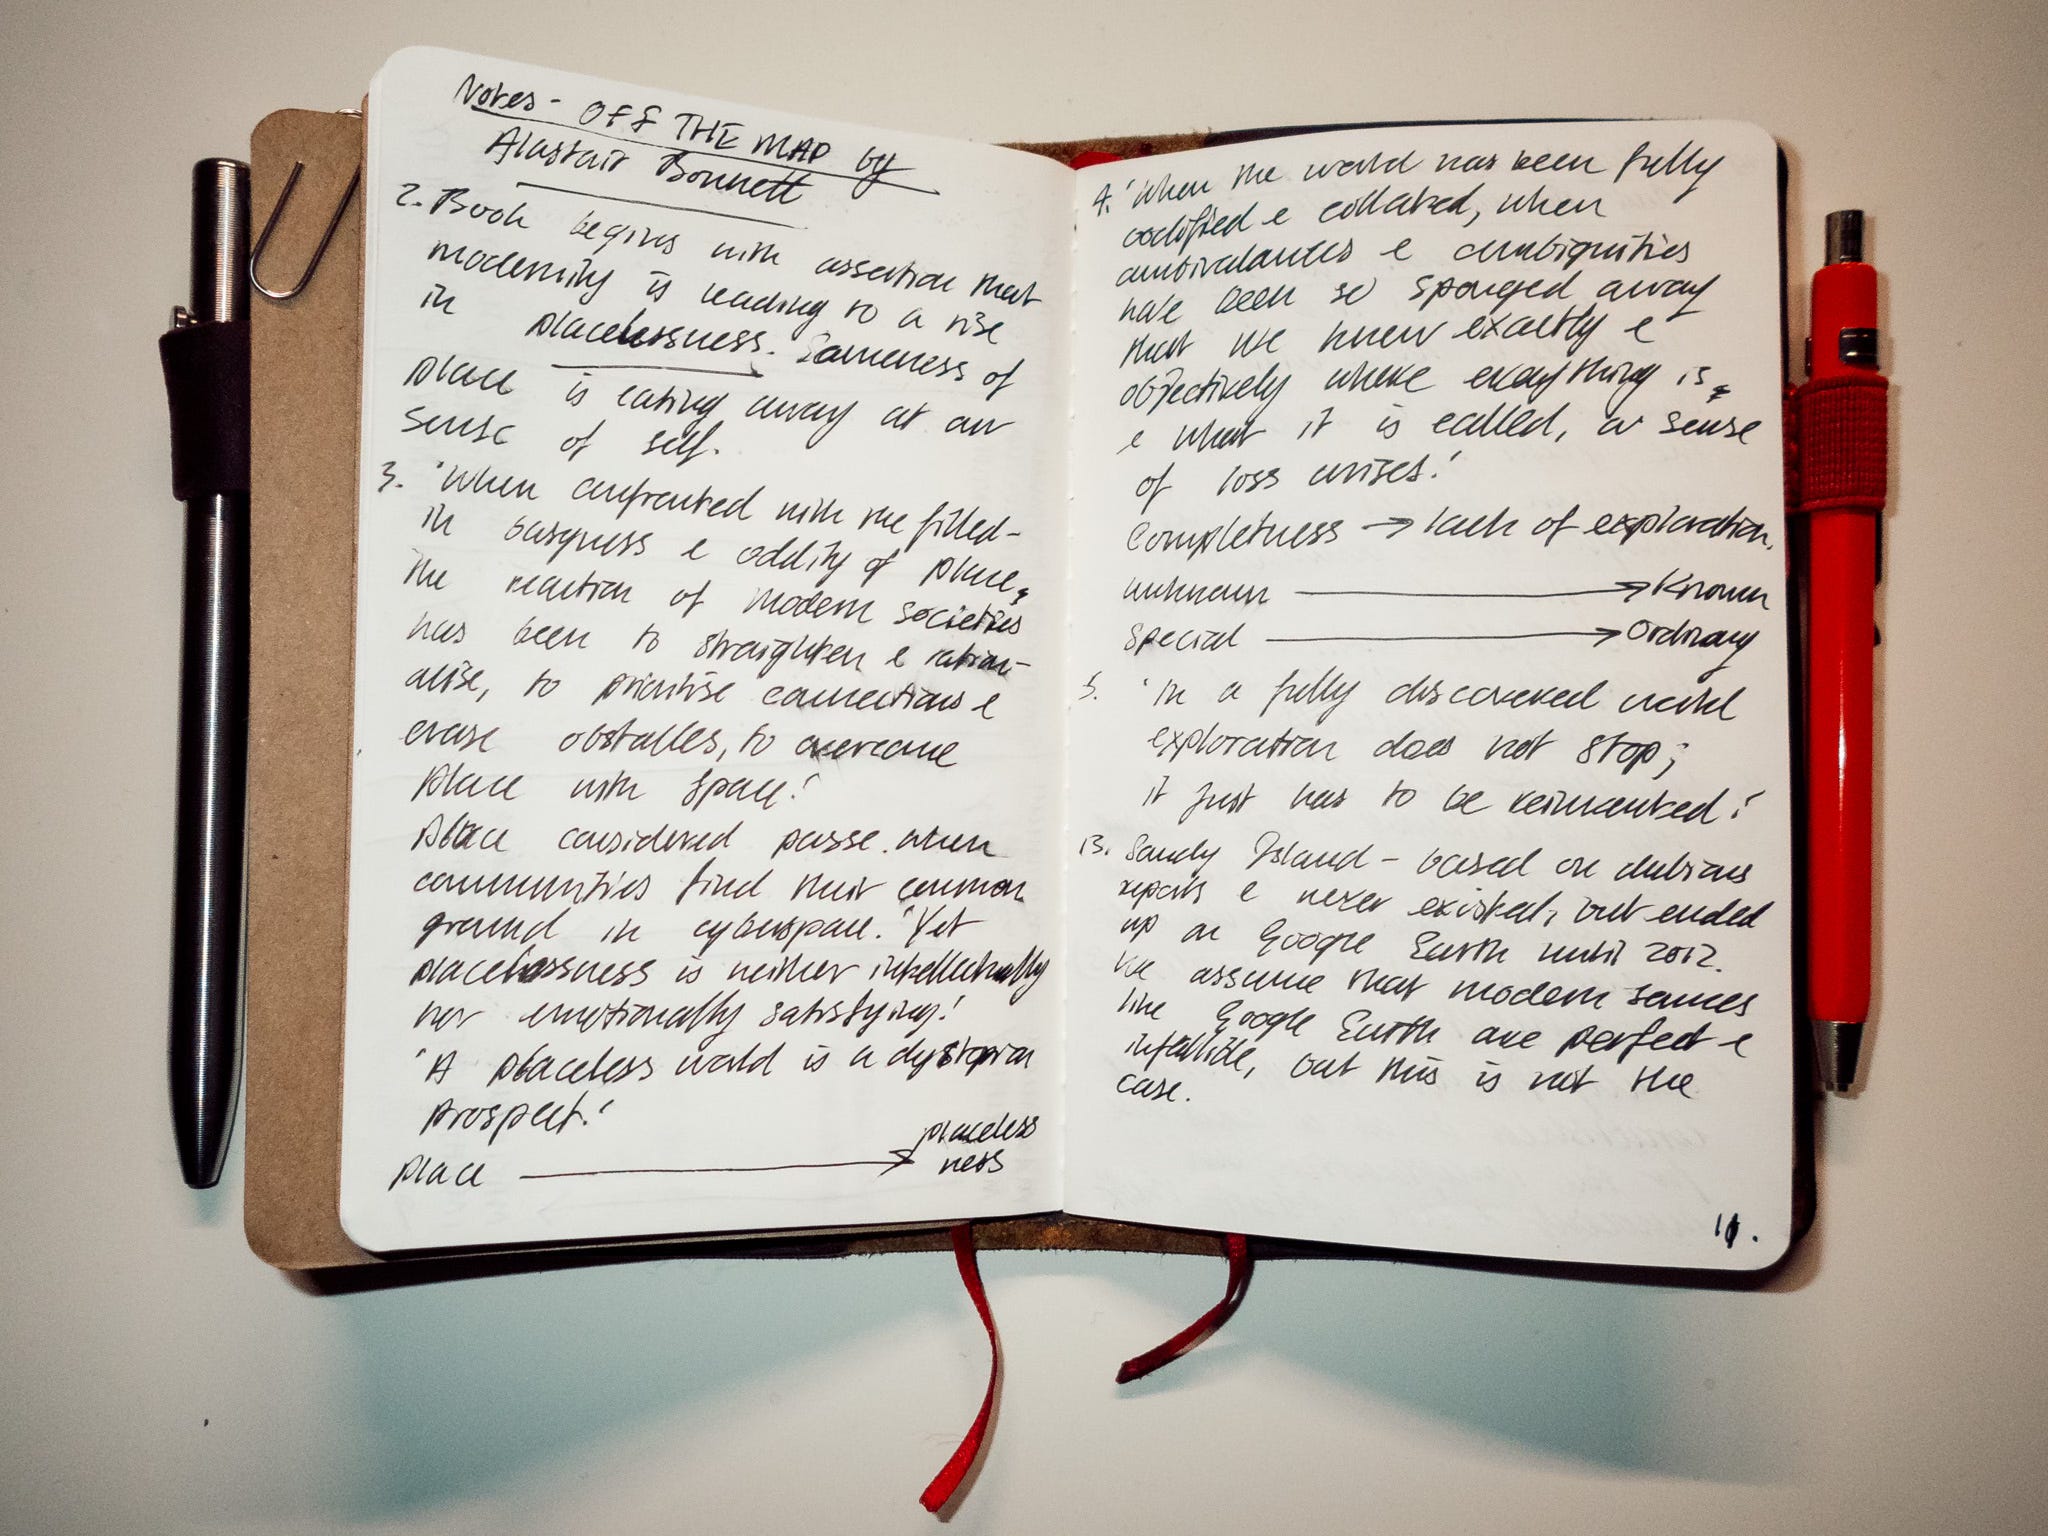 Notes - OFF THE MAP by
Alastair Bonnett
2. Book begins with assertion that
modernity is leading to a rise
in placelessness. Sameness of
place is eating away at our
sense of self.
3. 'When confronted with the filled-
in busyness e oddity of place,
the reaction of modern societies
has been to straighten e ration-
alise, to prioritise connections e
erase obstacles, to overcome
place with space.'
Place considered passe when
communities find their common
ground in cyberspace. 'Yet
placelessness is neither intellectually
nor emotionally satisfying.'
'A placeless world is a dystopian
prospect.'
place → placeless
ness
4. 'When the world has been fully
codified e collated, when
ambivalances e ambiguities
have been so sponged away
that we know exactly e
objectively where everything is,
e what it is called, a sense
of loss arises.'
Completness → lack of exploration.
unknown → Known
special → Ordinary
5. 'In a fully discovered world
exploration does not stop;
it just has to be reinvented.'
13. Sandy Island - based on dubious
reports e never existed, but ended
up on Google Earth until 2012.
We assume that modern sources
like Google Earth are perfect e
infallible, but this is not the
case.
11.